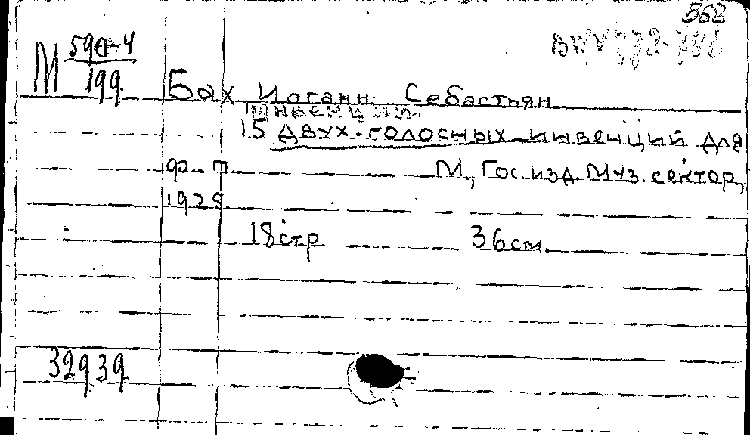 562
М 59а-4
199
Бах Иоганн Себастьян
15 двух-голосных инвенций для
ф-п М., Гос. изд. Муз. сектор,
18 стр 36 см.
32939